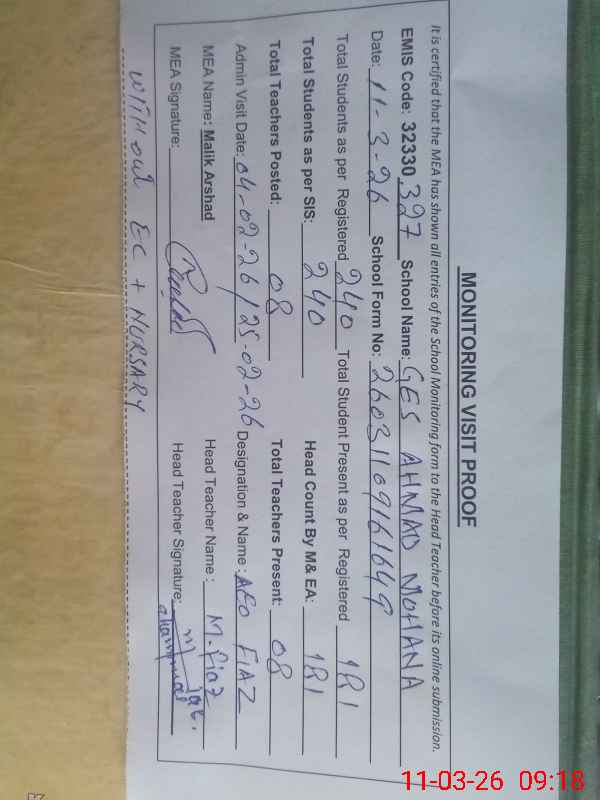 MONITORING VISIT PROOF
It is certified that the MEA has shown all entries of the School Monitoring form to the Head Teacher before its online submission.
EMIS Code: 32330 327 School Name: GES AHMAD MOHANA
Date: 11-3-26 School Form No: 26031109161649
Total Students as per Registered 240 Total Student Present as per Registered 181
Total Students as per SIS: 240 Head Count By M& EA: 181
Total Teachers Posted: 08 Total Teachers Present: 08
Admin Visit Date: 04-02-26 / 25-02-26 Designation & Name: AEO FIAZ
MEA Name: Malik Arshad Head Teacher Name: M. Fiaz
MEA Signature: Head Teacher Signature:
WITHout EC + NURSARY
11-03-26 09:18